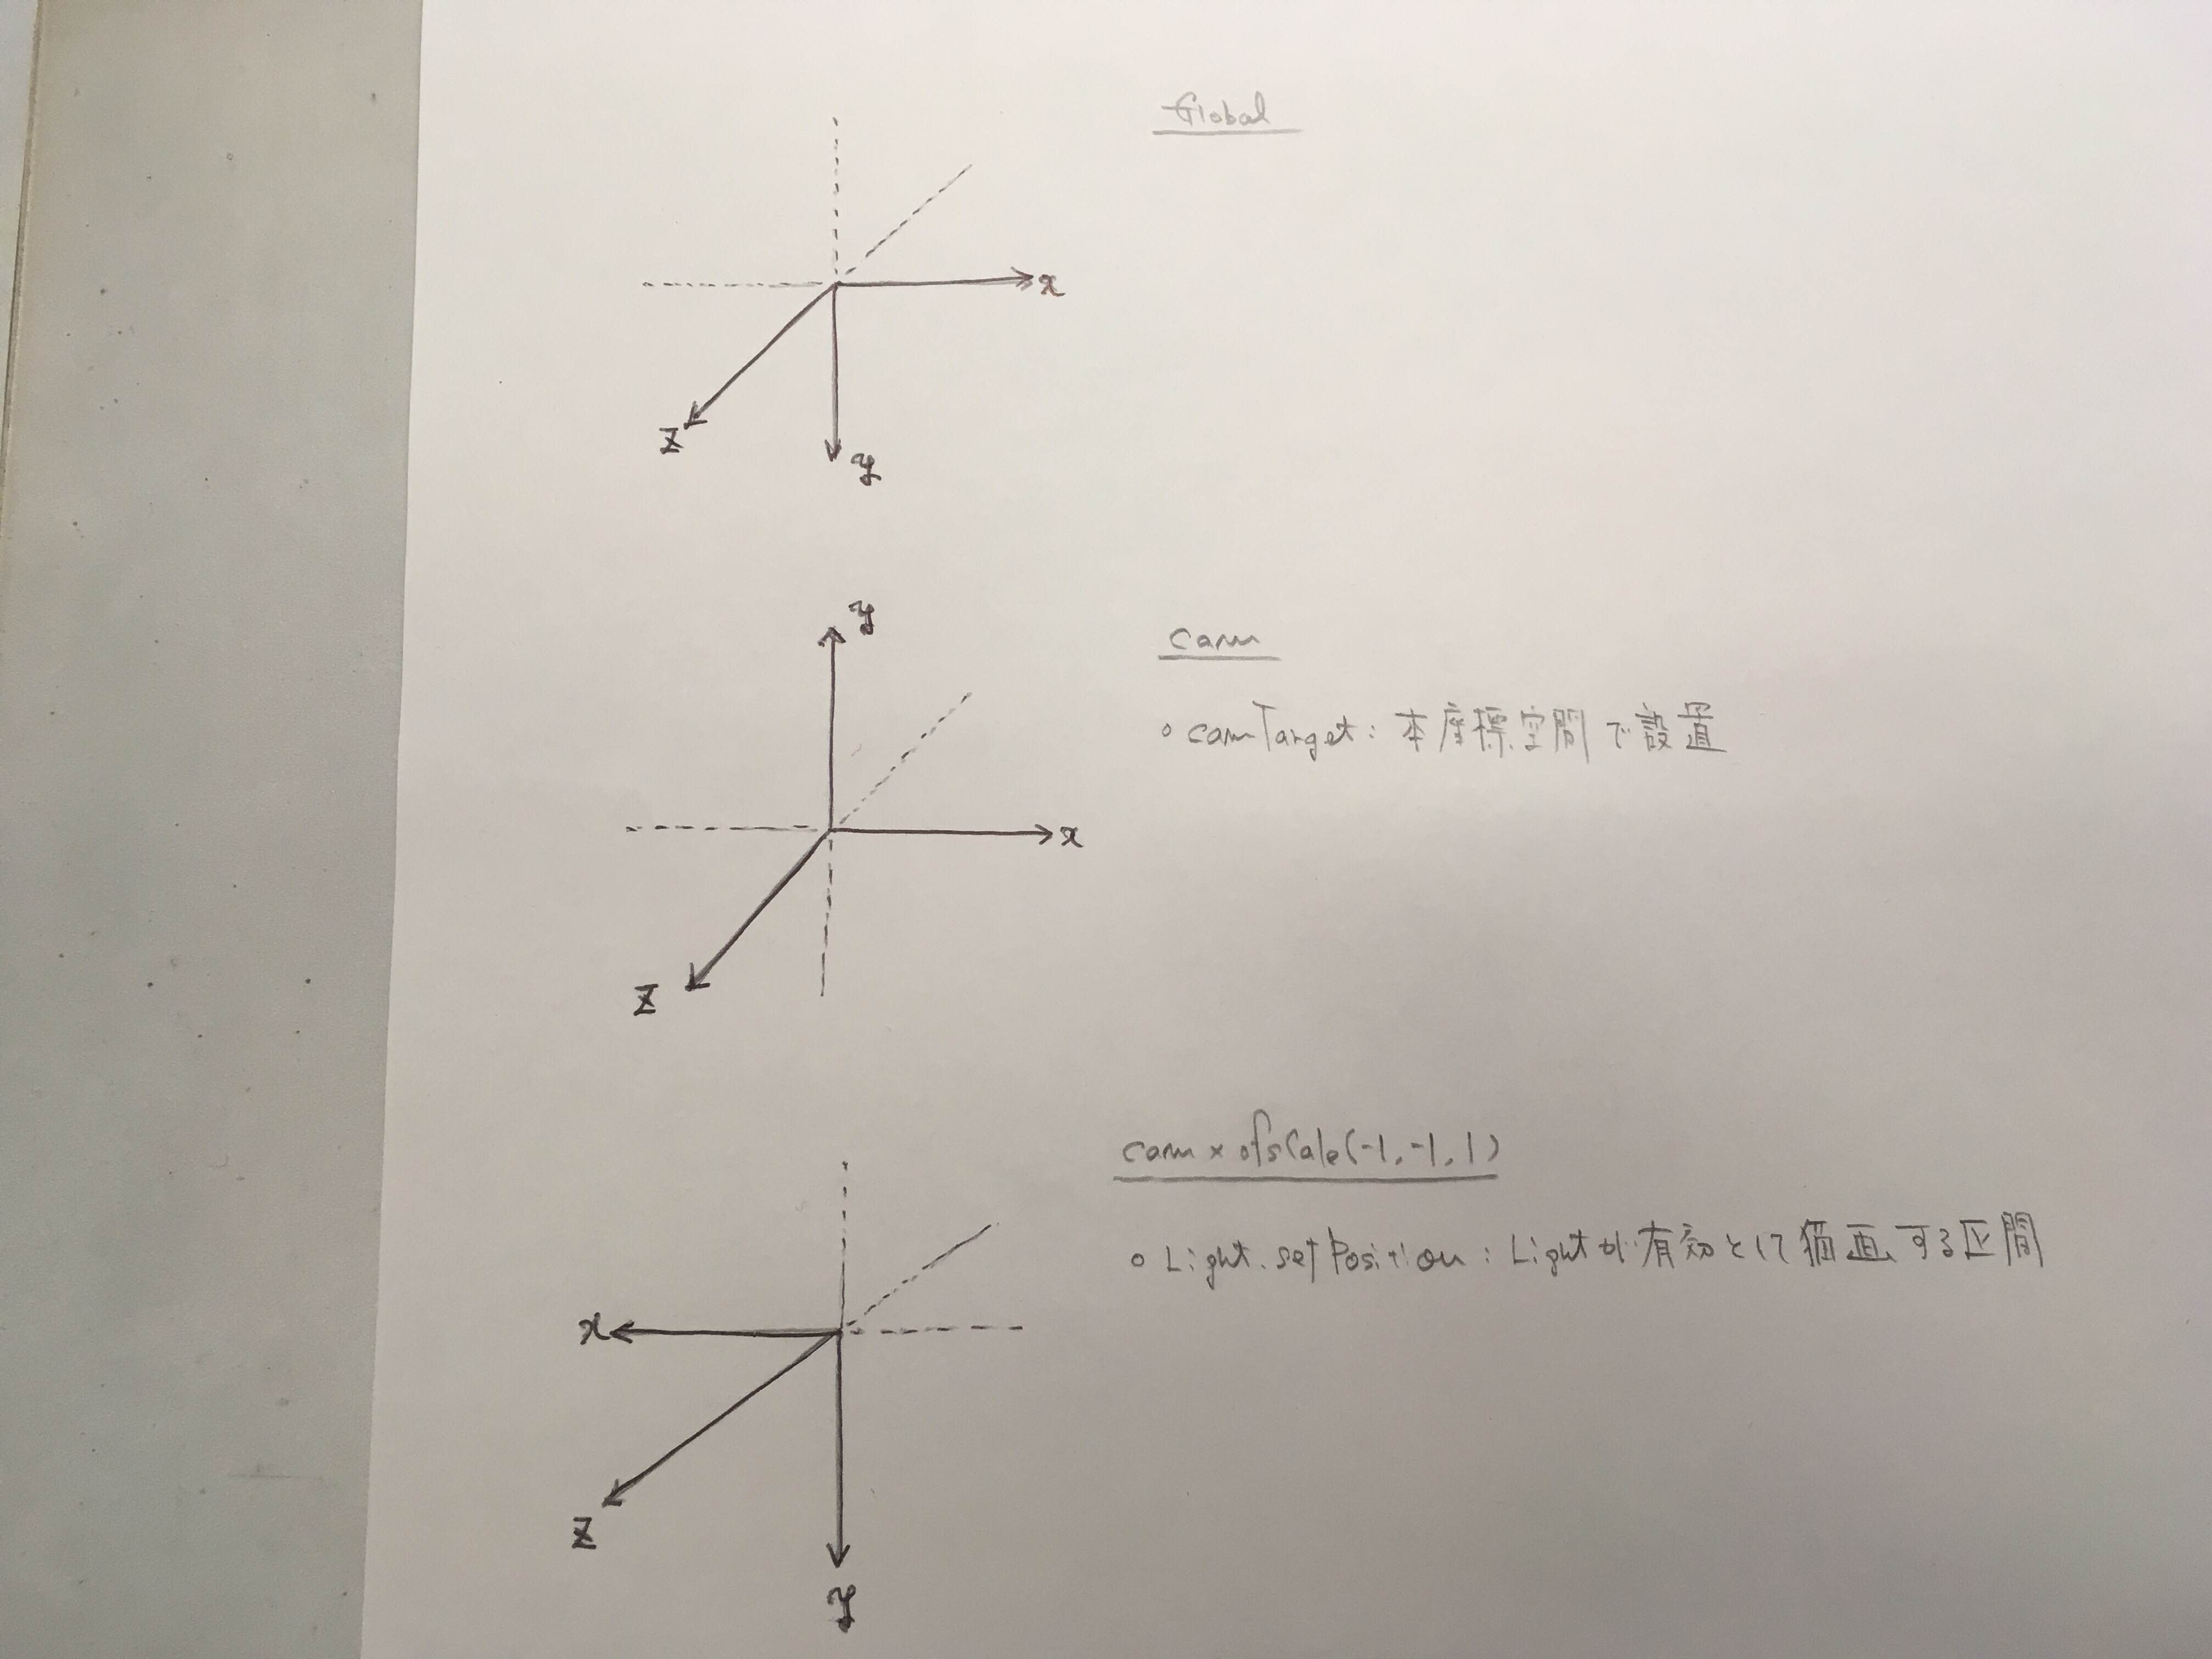 Global
x
z
y
y
cam
camTarget: 本座標空間で設置
x
z
cam × ofScale(-1, -1, 1)
Light.setPosition: Lightが有効として価画する区間
x
z
y